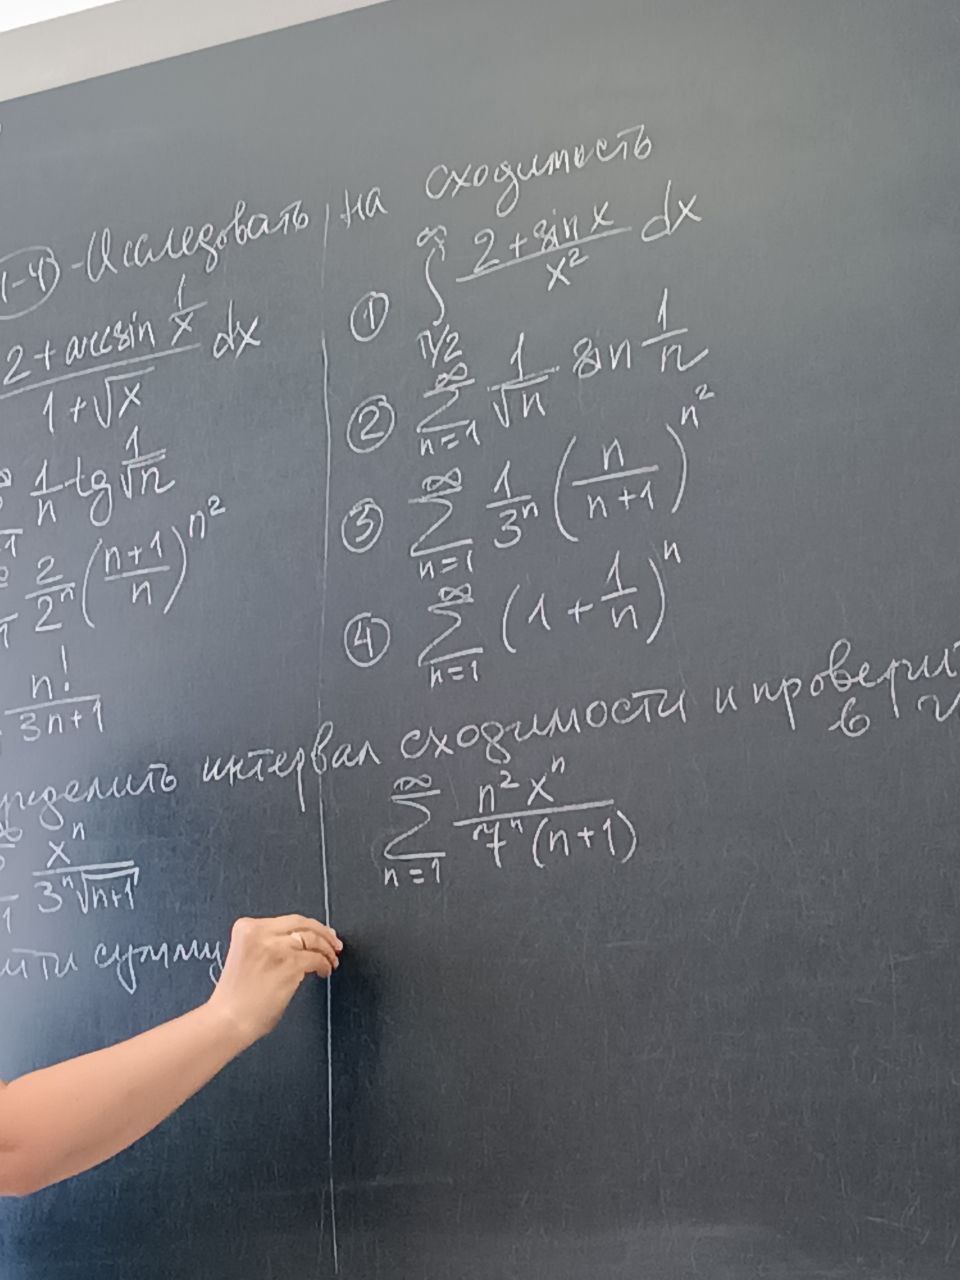 1-4) - Исследовать на сходимость
2 + arcsin 1/x / 1 + √x dx
1/n tg 1/√n
2/2^n ((n+1)/n)^n^2
n! / 3n+1
① ∫_{π/2}^{∞} (2 + sin x)/x^2 dx
② ∑_{n=1}^{∞} 1/√n sin 1/n
③ ∑_{n=1}^{∞} 1/3^n (n/(n+1))^n^2
④ ∑_{n=1}^{∞} (1 + 1/n)^n
интервал сходимости и проверит
в
x^n / 3^n √(n+1)
∑_{n=1}^{∞} n^2 x^n / 7^n (n+1)
сумму